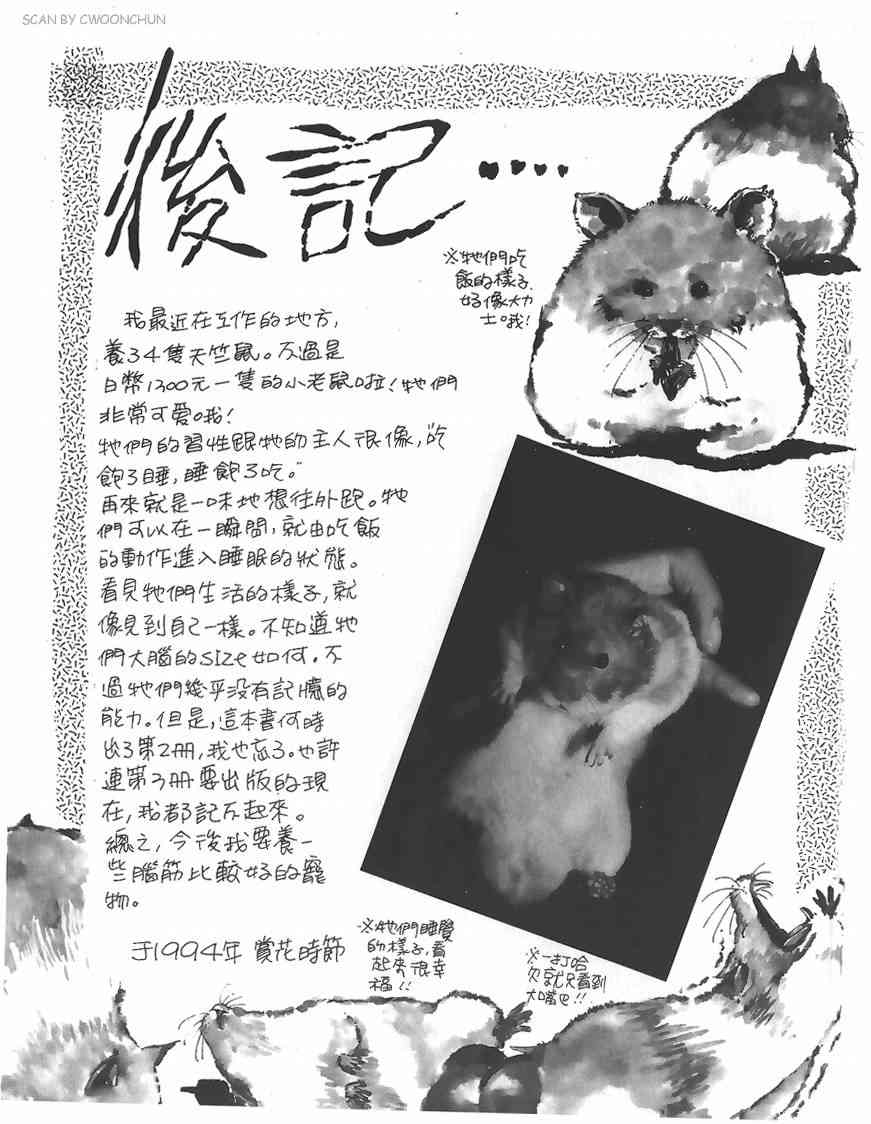 SCAN BY CWOONCHUN
後記....
※牠們吃
飯的樣子,
好像大力
士。哦!
我最近在工作的地方,
養3 4隻天竺鼠。不過是
日幣1300元一隻的小老鼠啦!牠們
非常可愛哦!
牠們的習性跟牠的主人很像,吃
飽了睡,睡飽了吃。
再來就是一味地想往外跑。牠
們可以在一瞬間,就由吃飯
的動作進入睡眠的狀態。
看見牠們生活的樣子,就
像見到自己一樣。不知道牠
們大腦的size如何。不
過牠們幾乎没有記憶的
能力。但是,這本書何時
出了第2冊,我也忘了。也許
連第3冊要出版的現
在,我都記不起來。
總之,今後我要養一
些腦筋比較好的寵
物。
于1994年 賞花時節
※牠們睡覺
的樣子,看
起來很幸
福!!
※一打哈
欠就只看到
大嘴巴!!